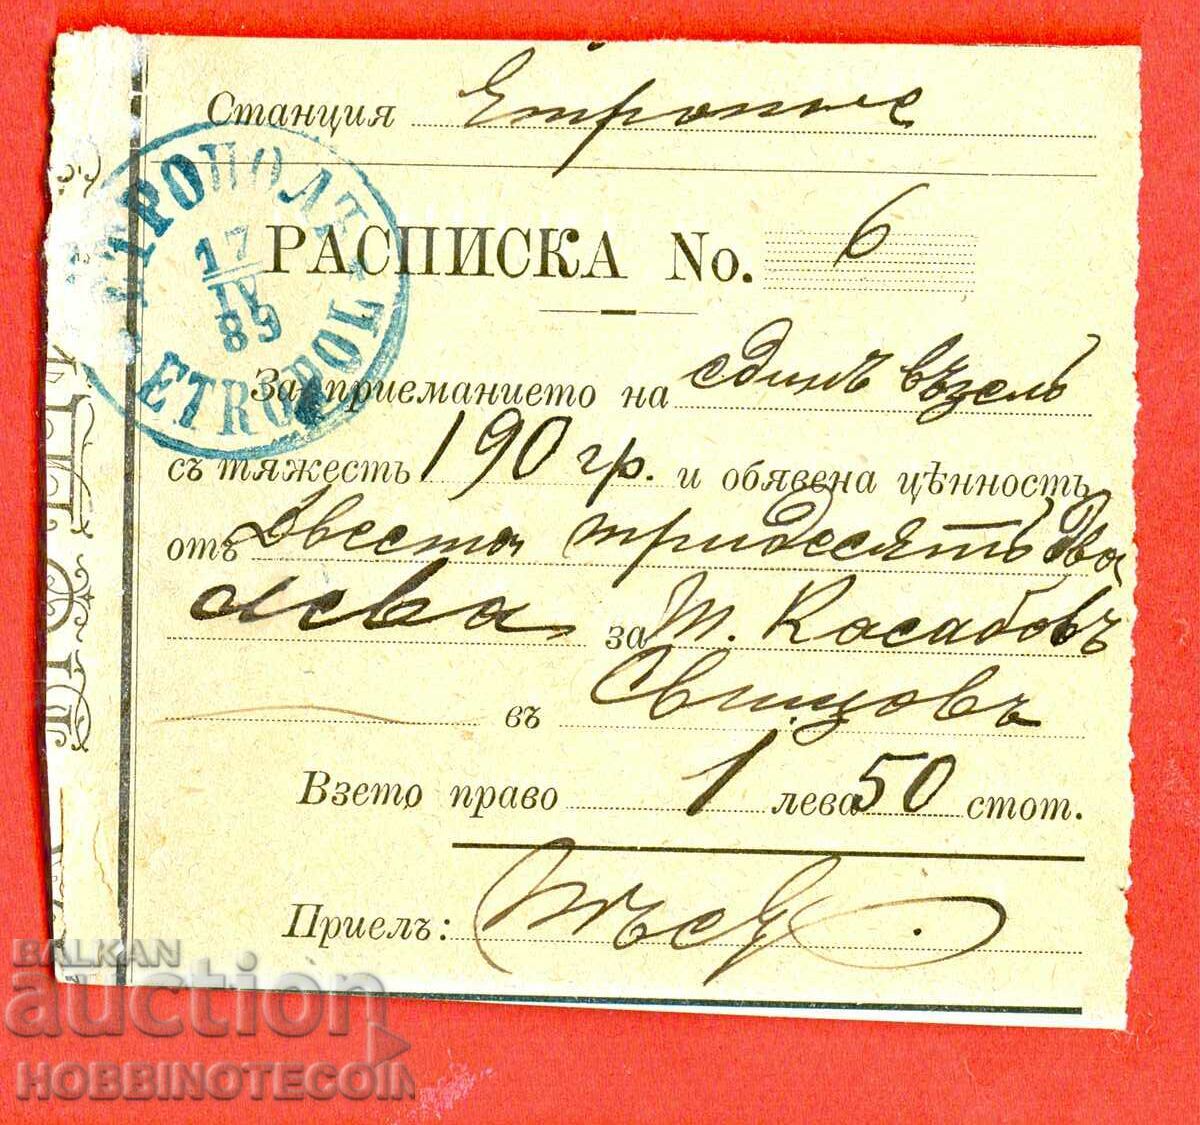 Станция Етрополе
ЕТРОПОЛЪ
17
IV
89
ETROPOL
РАСПИСКА No. 6
За приеманието на единъ възелъ
съ тяжесть 190 гр. и обявена цѣнность
отъ Двеста тридесять два
лева за Т. Касабовъ
въ Свищовъ
Взето право 1 лева 50 стот.
Приелъ:
BALKAN
auction
HOBBINOTECOIN